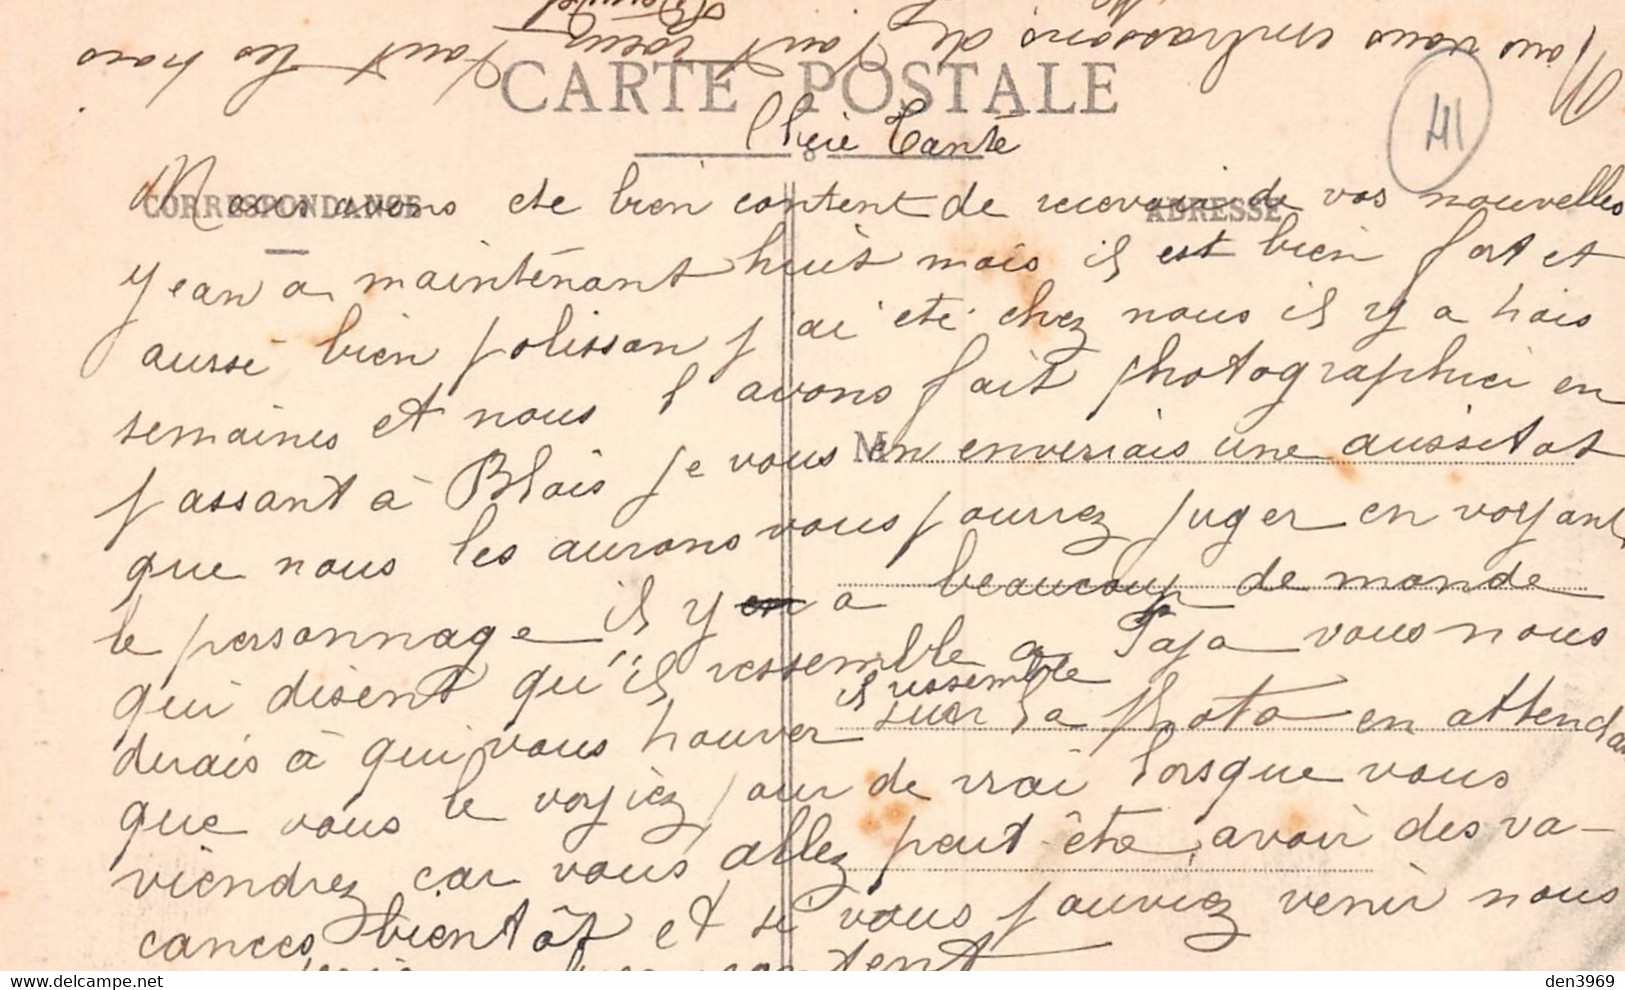 Nous vous embrassons de
tout coeur tout les trois
CARTE POSTALE
41
Chere Tante
CORRESPONDANCE
ADRESSE
Nous avons ete bien content de recevoir de vos nouvelles
Jean a maintenant huit mois il est bien fort et
aussi bien polisson j'ai ete chez nous il y a trois
semaines et nous l'avons fait photographier en
passant à Blois je vous en enverrais une aussitot
M
que nous les aurons vous pourrez juger en voyant
le personnage il y a beaucoup de monde
qui disent qu'il ressemble a Papa vous nous
il ressemble
direais à qui vous trouver sur la photo en attendan
que vous le voyiez pour de vrai lorsque vous
viendrez car vous allez peut être avoir des va-
cances bientôt et si vous pouviez venir nous
content
den3969